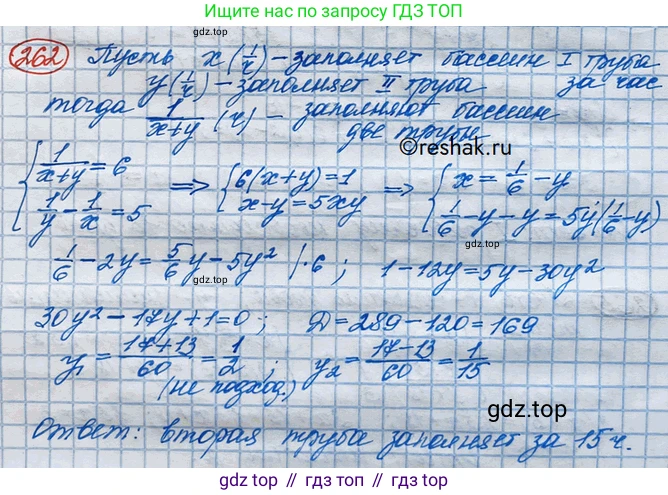 Ищите нас по запросу ГДЗ ТОП
gdz.top
262 Пусть x (1/ч) - заполняет бассеин I труба
y (1/ч) - заполняет II труба за час
тогда 1/(x+y) (ч) - заполняют бассеин
две трубы
©reshak.ru
{ 1/(x+y) = 6 ; 1/y - 1/x = 5 => { 6(x+y)=1 ; x-y=5xy => { x = 1/6 - y ; 1/6 - y - y = 5y(1/6 - y)
1/6 - 2y = 5/6 y - 5y² | ·6 ; 1-12y=5y-30y²
30y² - 17y + 1 = 0 ; D = 289 - 120 = 169
y₁ = (17+13)/60 = 1/2 ; y₂ = (17-13)/60 = 1/15
(не подход.)
gdz.top
Ответ: вторая труба заполняет за 15 ч.
gdz.top // gdz.top // gdz.top // gdz.top